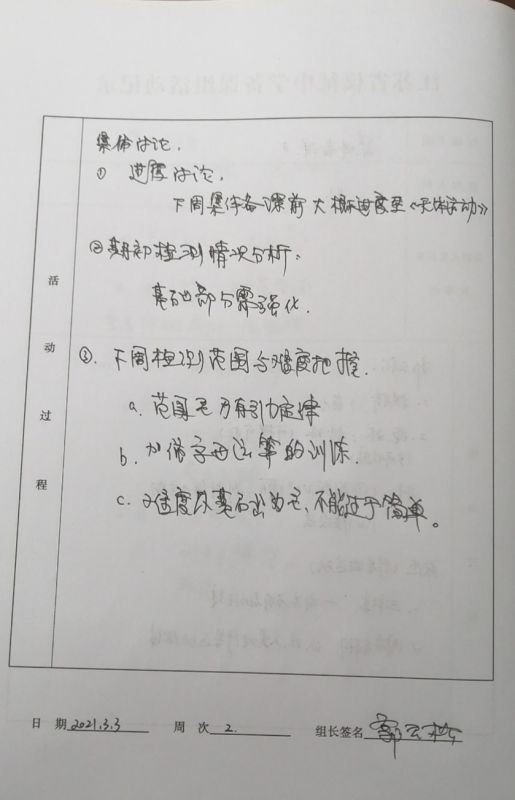 集体讨论.
① 进度讨论.
下周集体备课前大概进度至《天体运动》
②期初检测情况分析:
基础部分需强化.
③. 下周检测范围与难度把握.
a. 范围至万有引力定律
b. 加强字母运算的训练.
c. 难度以基础为主, 不能过于简单。
活
动
过
程
日 期 2021.3.3 周 次 2. 组长签名